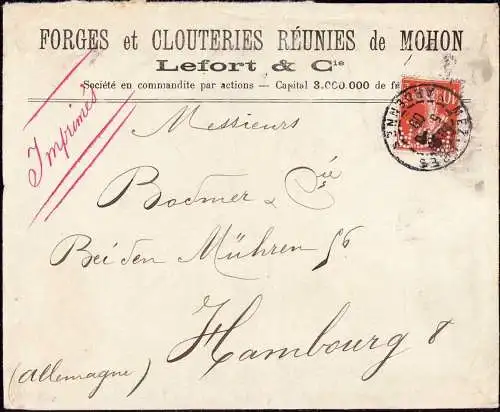 FORGES et CLOUTERIES RÉUNIES de MOHON
Lefort & Cie
Société en commandite par actions — Capital 3.000.000 de f
Imprimés
Messieurs
Bodmer & Cie
Bei den Mühren 56
Hambourg 8
(Allemagne)
10
MEZIERES
ARDENNES